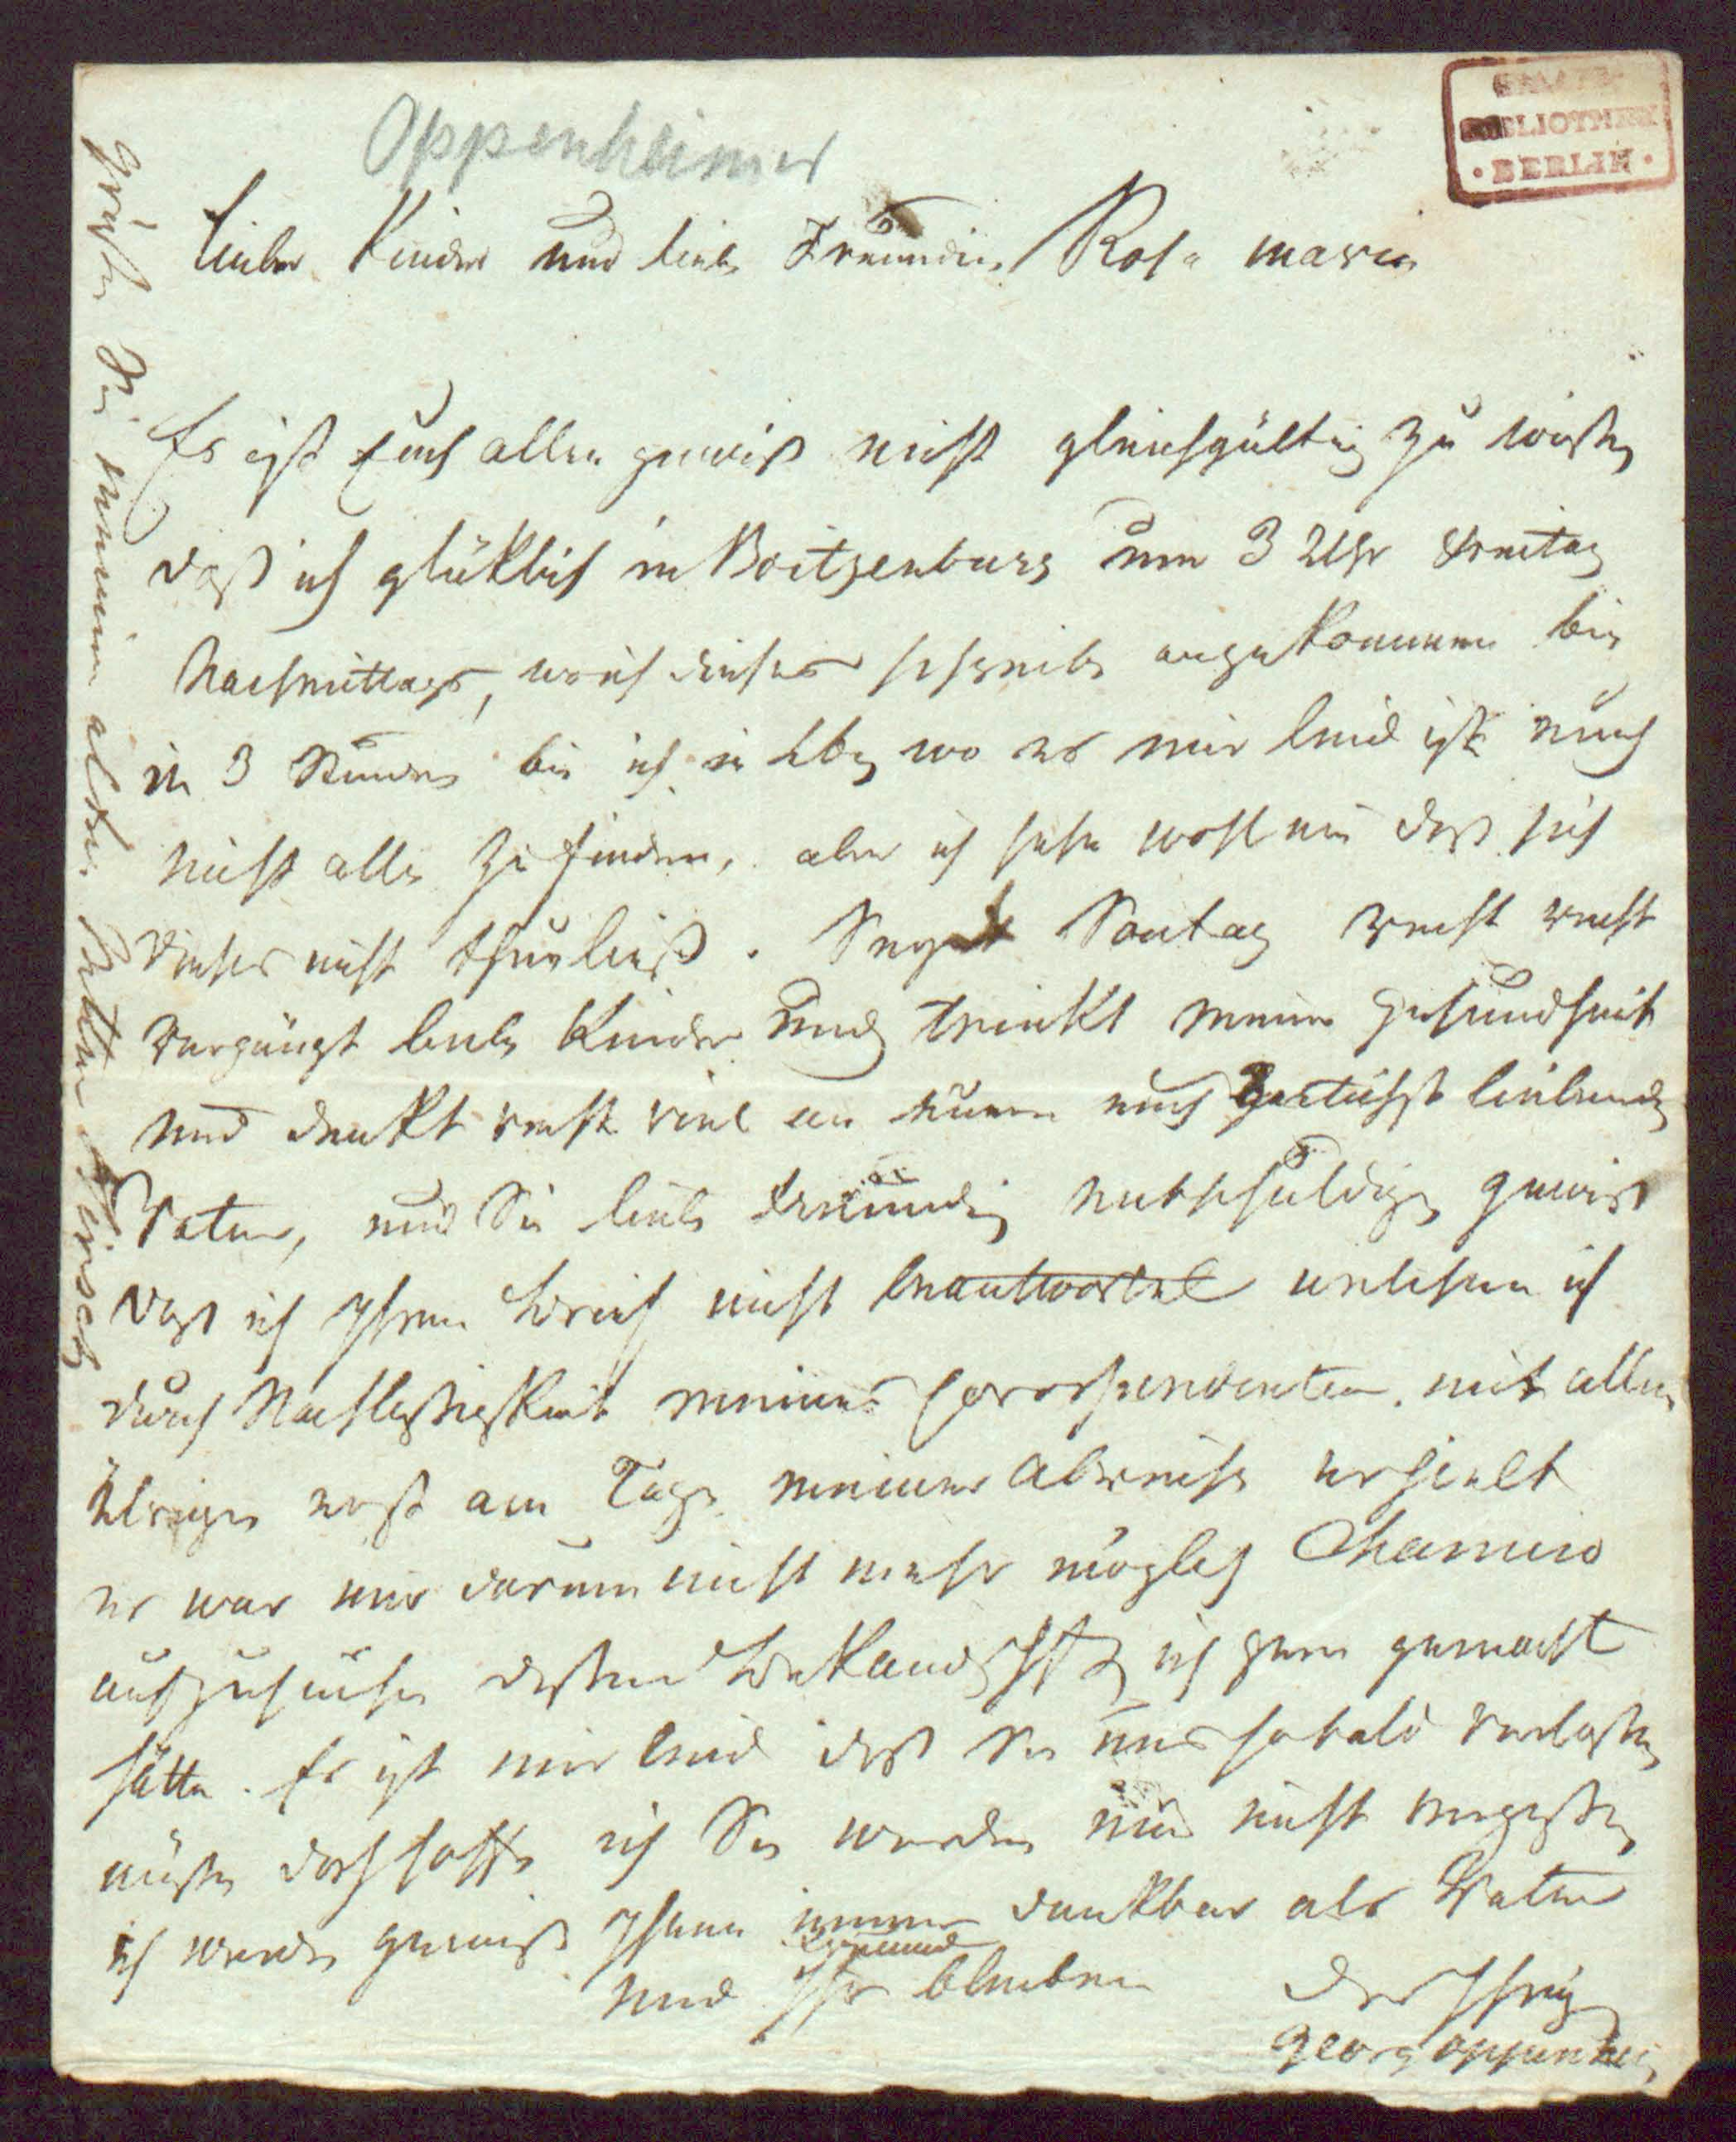 Oppenheimer
BIBLIOTHEK
BERLIN
Liebe Kinder und liebe Freundin Rosa maria
Es ist Euch allen gewiß nicht gleichgültig zu wißen
daß ich glüklich in Boitzenburg um 3 Uhr Freitag
Nachmittags, wo ich dieses schreibe angekommen bin
in 3 Stunden bin ich in Lbg wo es mir leid ist euch
nicht alle zu finden, aber ich sehe wohl ein daß sich
dieses nicht thun ließ. Seyd Sontag recht recht
vergnügt liebe Kinder und trinkt meine Gesundheit
und denkt recht viel an euren euch zärtlichst liebenden
Vater, und Sie liebe Freundin entschuldigen gewiß
daß ich Ihren Brief nicht beantwortet welchen ich
durch Nachlessigkeit meines Corospendenten mit allen
übrigen erst am Tage meiner Abreise erhielt
es war mir darum nicht mehr möglich Chamiso
aufzusuchen deßen Bekandschaft ich gern gemacht
hätte. Es ist mir leid daß Sie uns sobald verlaßen
müßen doch hoffe ich Sie werden uns nicht vergeßen
ich werde gewiß Ihnen immer dankbar als Vater
und Ihr Freund bleiben
der Ihrige
Georg Oppenheim
Grüßen Sie meinen alten Vetter Hirsch